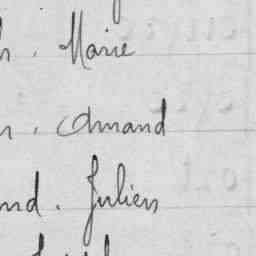 . Marie
. Amand
nd. Julien